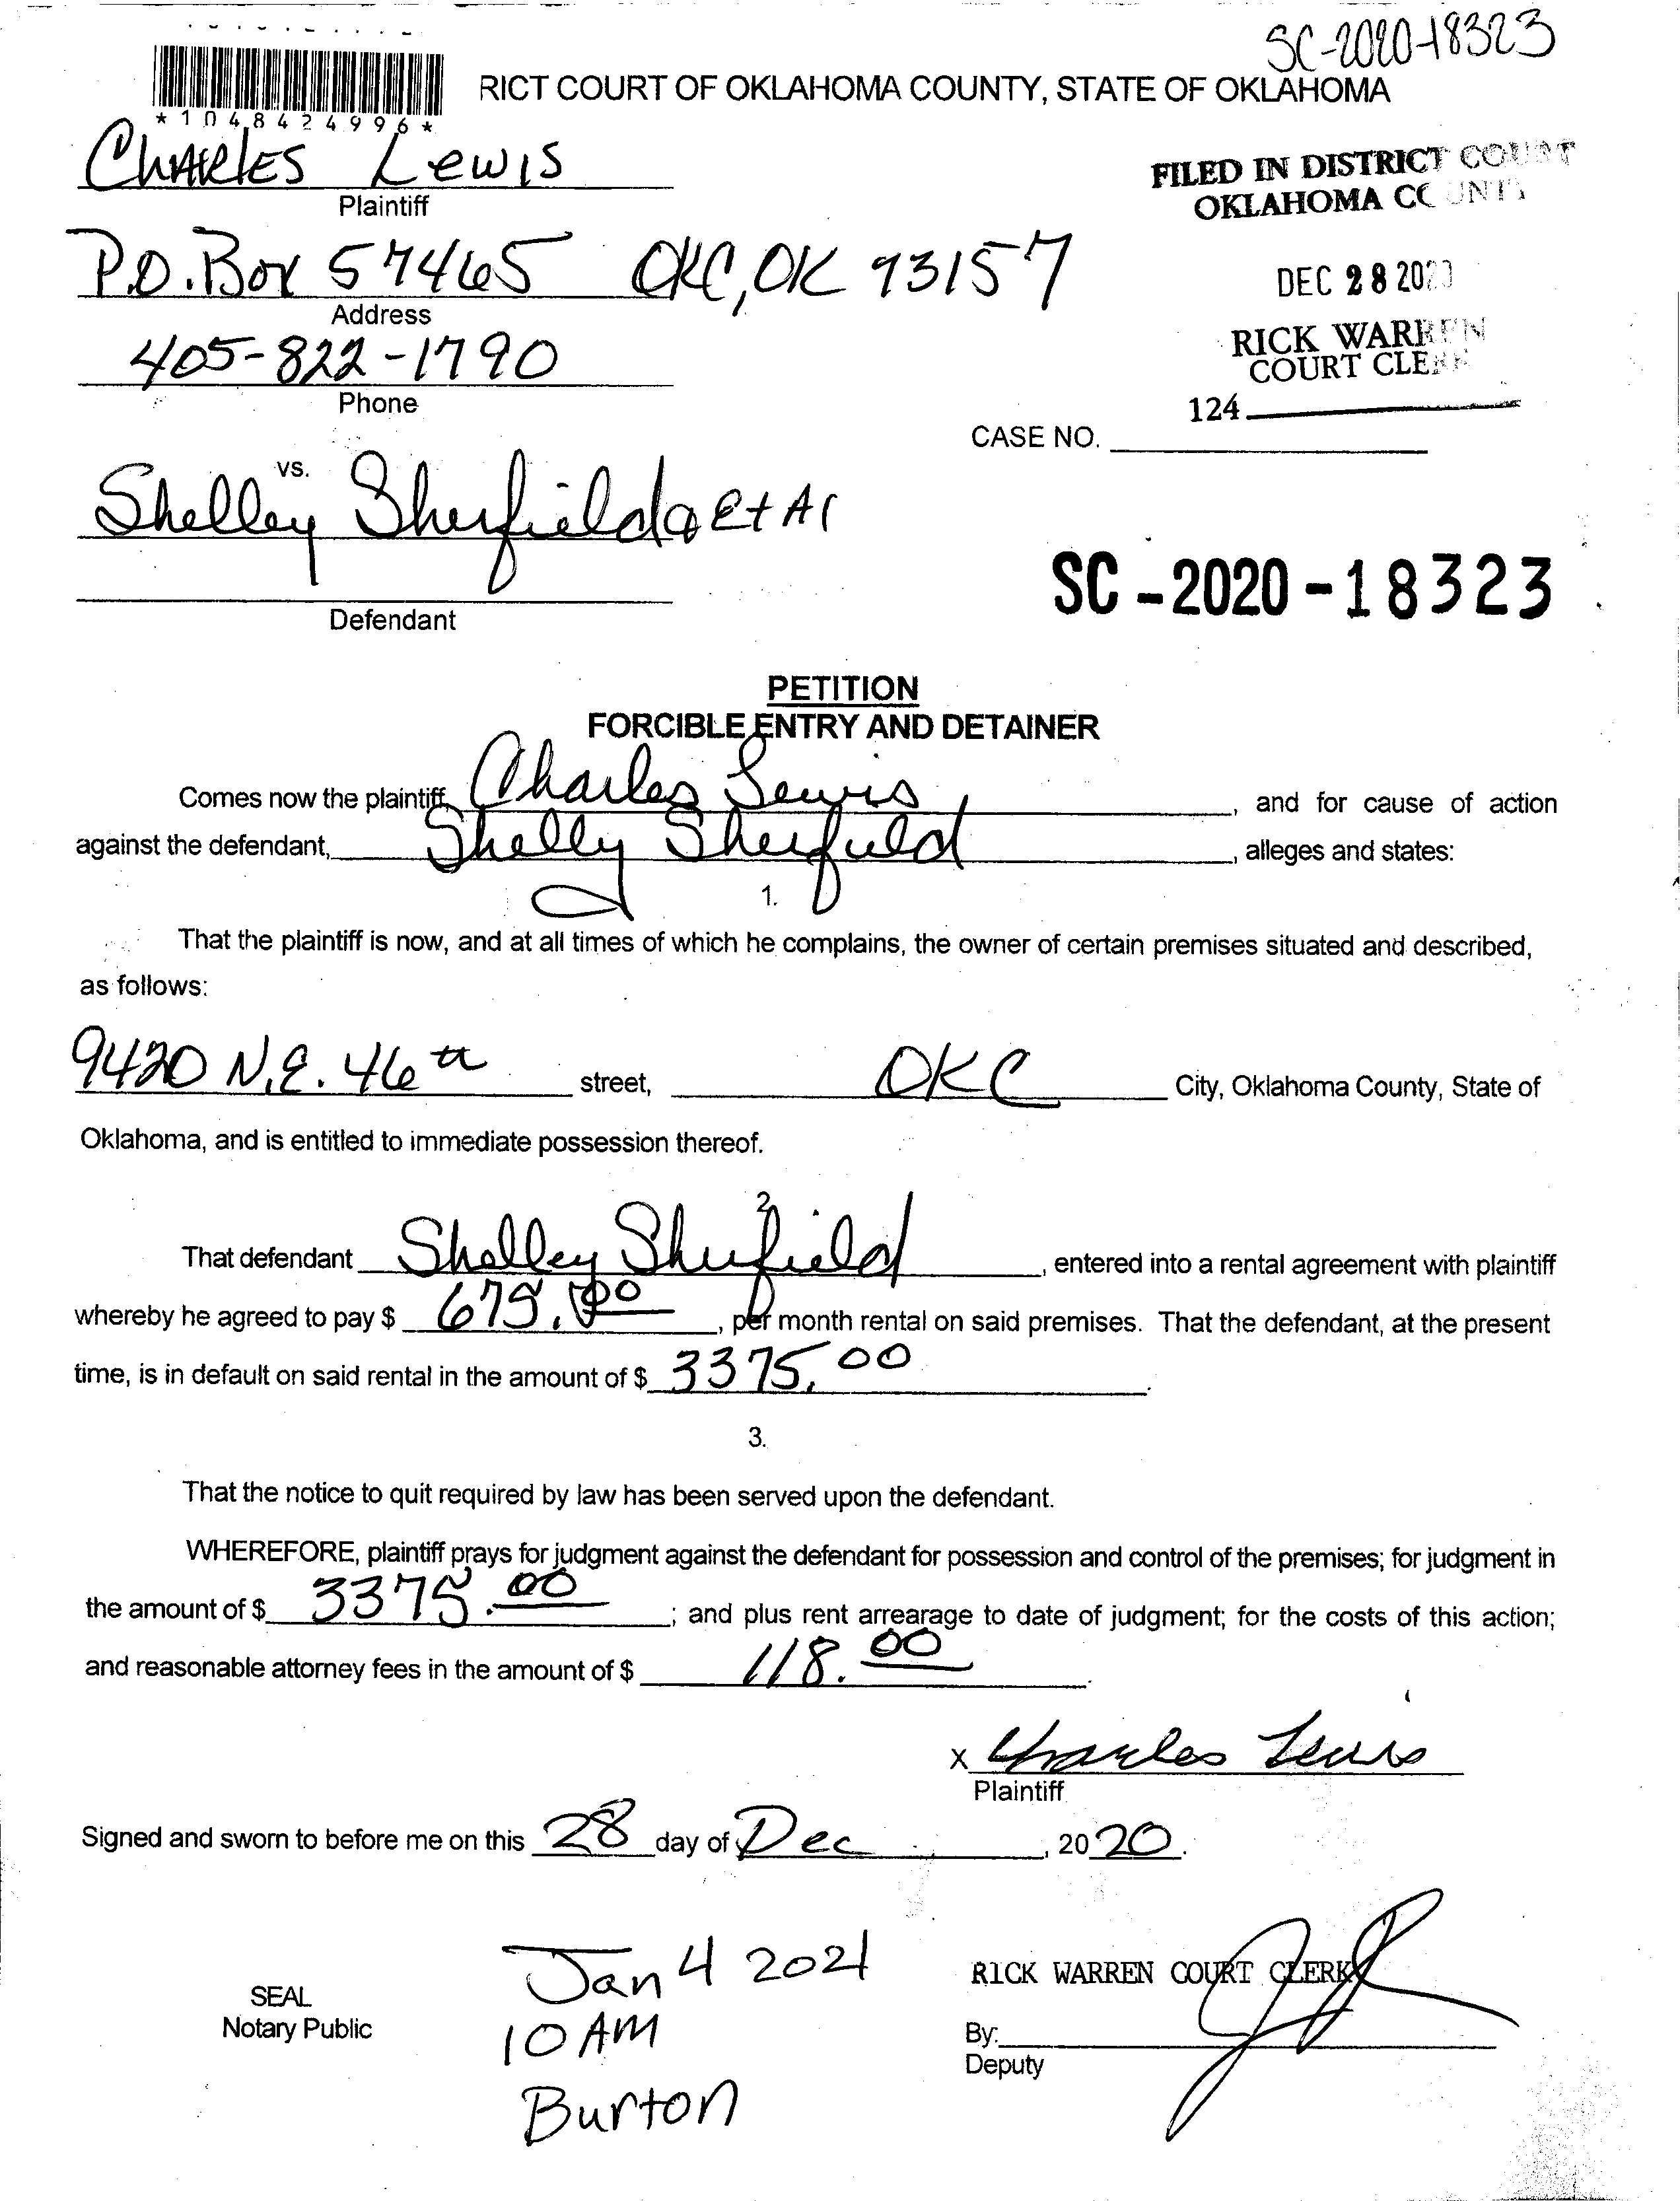 SC-2020-18323
RICT COURT OF OKLAHOMA COUNTY, STATE OF OKLAHOMA
*1048424996*
CHARLES LEWIS
Plaintiff
FILED IN DISTRICT COURT
OKLAHOMA COUNTY
P.O. Box 57465 OKC, OK 73157
Address
DEC 28 2020
405-822-1790
Phone
RICK WARREN
COURT CLERK
124
CASE NO.
vs.
Shelley Sherfield Et Al
SC-2020-18323
Defendant
PETITION
FORCIBLE ENTRY AND DETAINER
Comes now the plaintiff, Charles Lewis, and for cause of action
against the defendant, Shelly Sherfield, alleges and states:
1.
That the plaintiff is now, and at all times of which he complains, the owner of certain premises situated and described,
as follows:
9420 N.E. 46th street, OKC City, Oklahoma County, State of
Oklahoma, and is entitled to immediate possession thereof.
2.
That defendant Shelley Sherfield, entered into a rental agreement with plaintiff
whereby he agreed to pay $ 675.00, per month rental on said premises. That the defendant, at the present
time, is in default on said rental in the amount of $ 3375.00.
3.
That the notice to quit required by law has been served upon the defendant.
WHEREFORE, plaintiff prays for judgment against the defendant for possession and control of the premises; for judgment in
the amount of $ 3375.00; and plus rent arrearage to date of judgment; for the costs of this action;
and reasonable attorney fees in the amount of $ 118.00.
X Charles Lewis
Plaintiff
Signed and sworn to before me on this 28 day of Dec, 2020.
Jan 4 2021
RICK WARREN COURT CLERK
SEAL
Notary Public
10 AM
By:
Deputy
Burton